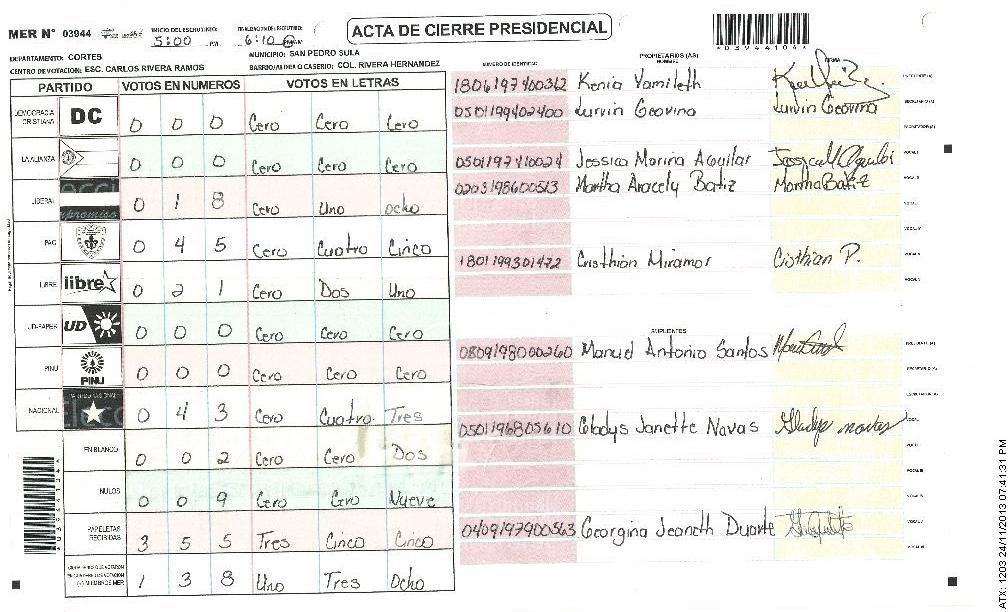 MER N° 03944
INICIO DEL ESCRUTINIO:
5:00 PM
FINALIZACION DEL ESCRUTINIO:
6:10 PM
ACTA DE CIERRE PRESIDENCIAL
*03944104*
DEPARTAMENTO: CORTES
MUNICIPIO: SAN PEDRO SULA
CENTRO DE VOTACION: ESC. CARLOS RIVERA RAMOS
BARRIO/ALDEA O CASERIO: COL. RIVERA HERNANDEZ
PARTIDO VOTOS EN NUMEROS VOTOS EN LETRAS
DEMOCRACIA CRISTIANA DC 0 0 0 Cero Cero Cero
LA ALIANZA 0 0 0 Cero Cero Cero
LIBERAL 0 1 8 Cero Uno ocho
PAC 0 4 5 Cero Cuatro Cinco
LIBRE libre 0 2 1 Cero Dos Uno
UD-FAPER UD 0 0 0 Cero Cero Cero
PINU PINU 0 0 0 Cero Cero Cero
NACIONAL 0 4 3 Cero Cuatro Tres
EN BLANCO 0 0 2 Cero Cero Dos
NULOS 0 0 9 Cero Cero Nueve
PAPELETAS RECIBIDAS 3 5 5 Tres Cinco Cinco
1 3 8 Uno Tres Ocho
NUMERO DE IDENTIDAD PROPIETARIOS (AS) NOMBRE FIRMA
1806197400312 Kenia Yamileth
0501199402400 Lurvin Geovina Lurvin Geovina
0501197410024 Jessica Marina Aguilar
0203198600513 Martha Aracely Batiz Martha Batiz
1801199301472 Cristhian Miramar Cristhian P.
SUPLENTES
0809198000260 Manuel Antonio Santos
0501196805610 Gladys Janette Navas Gladys navas
0409197900563 Georgina Jeaneth Duarte
ATX: 1203 24/11/2013 07:41:31 PM